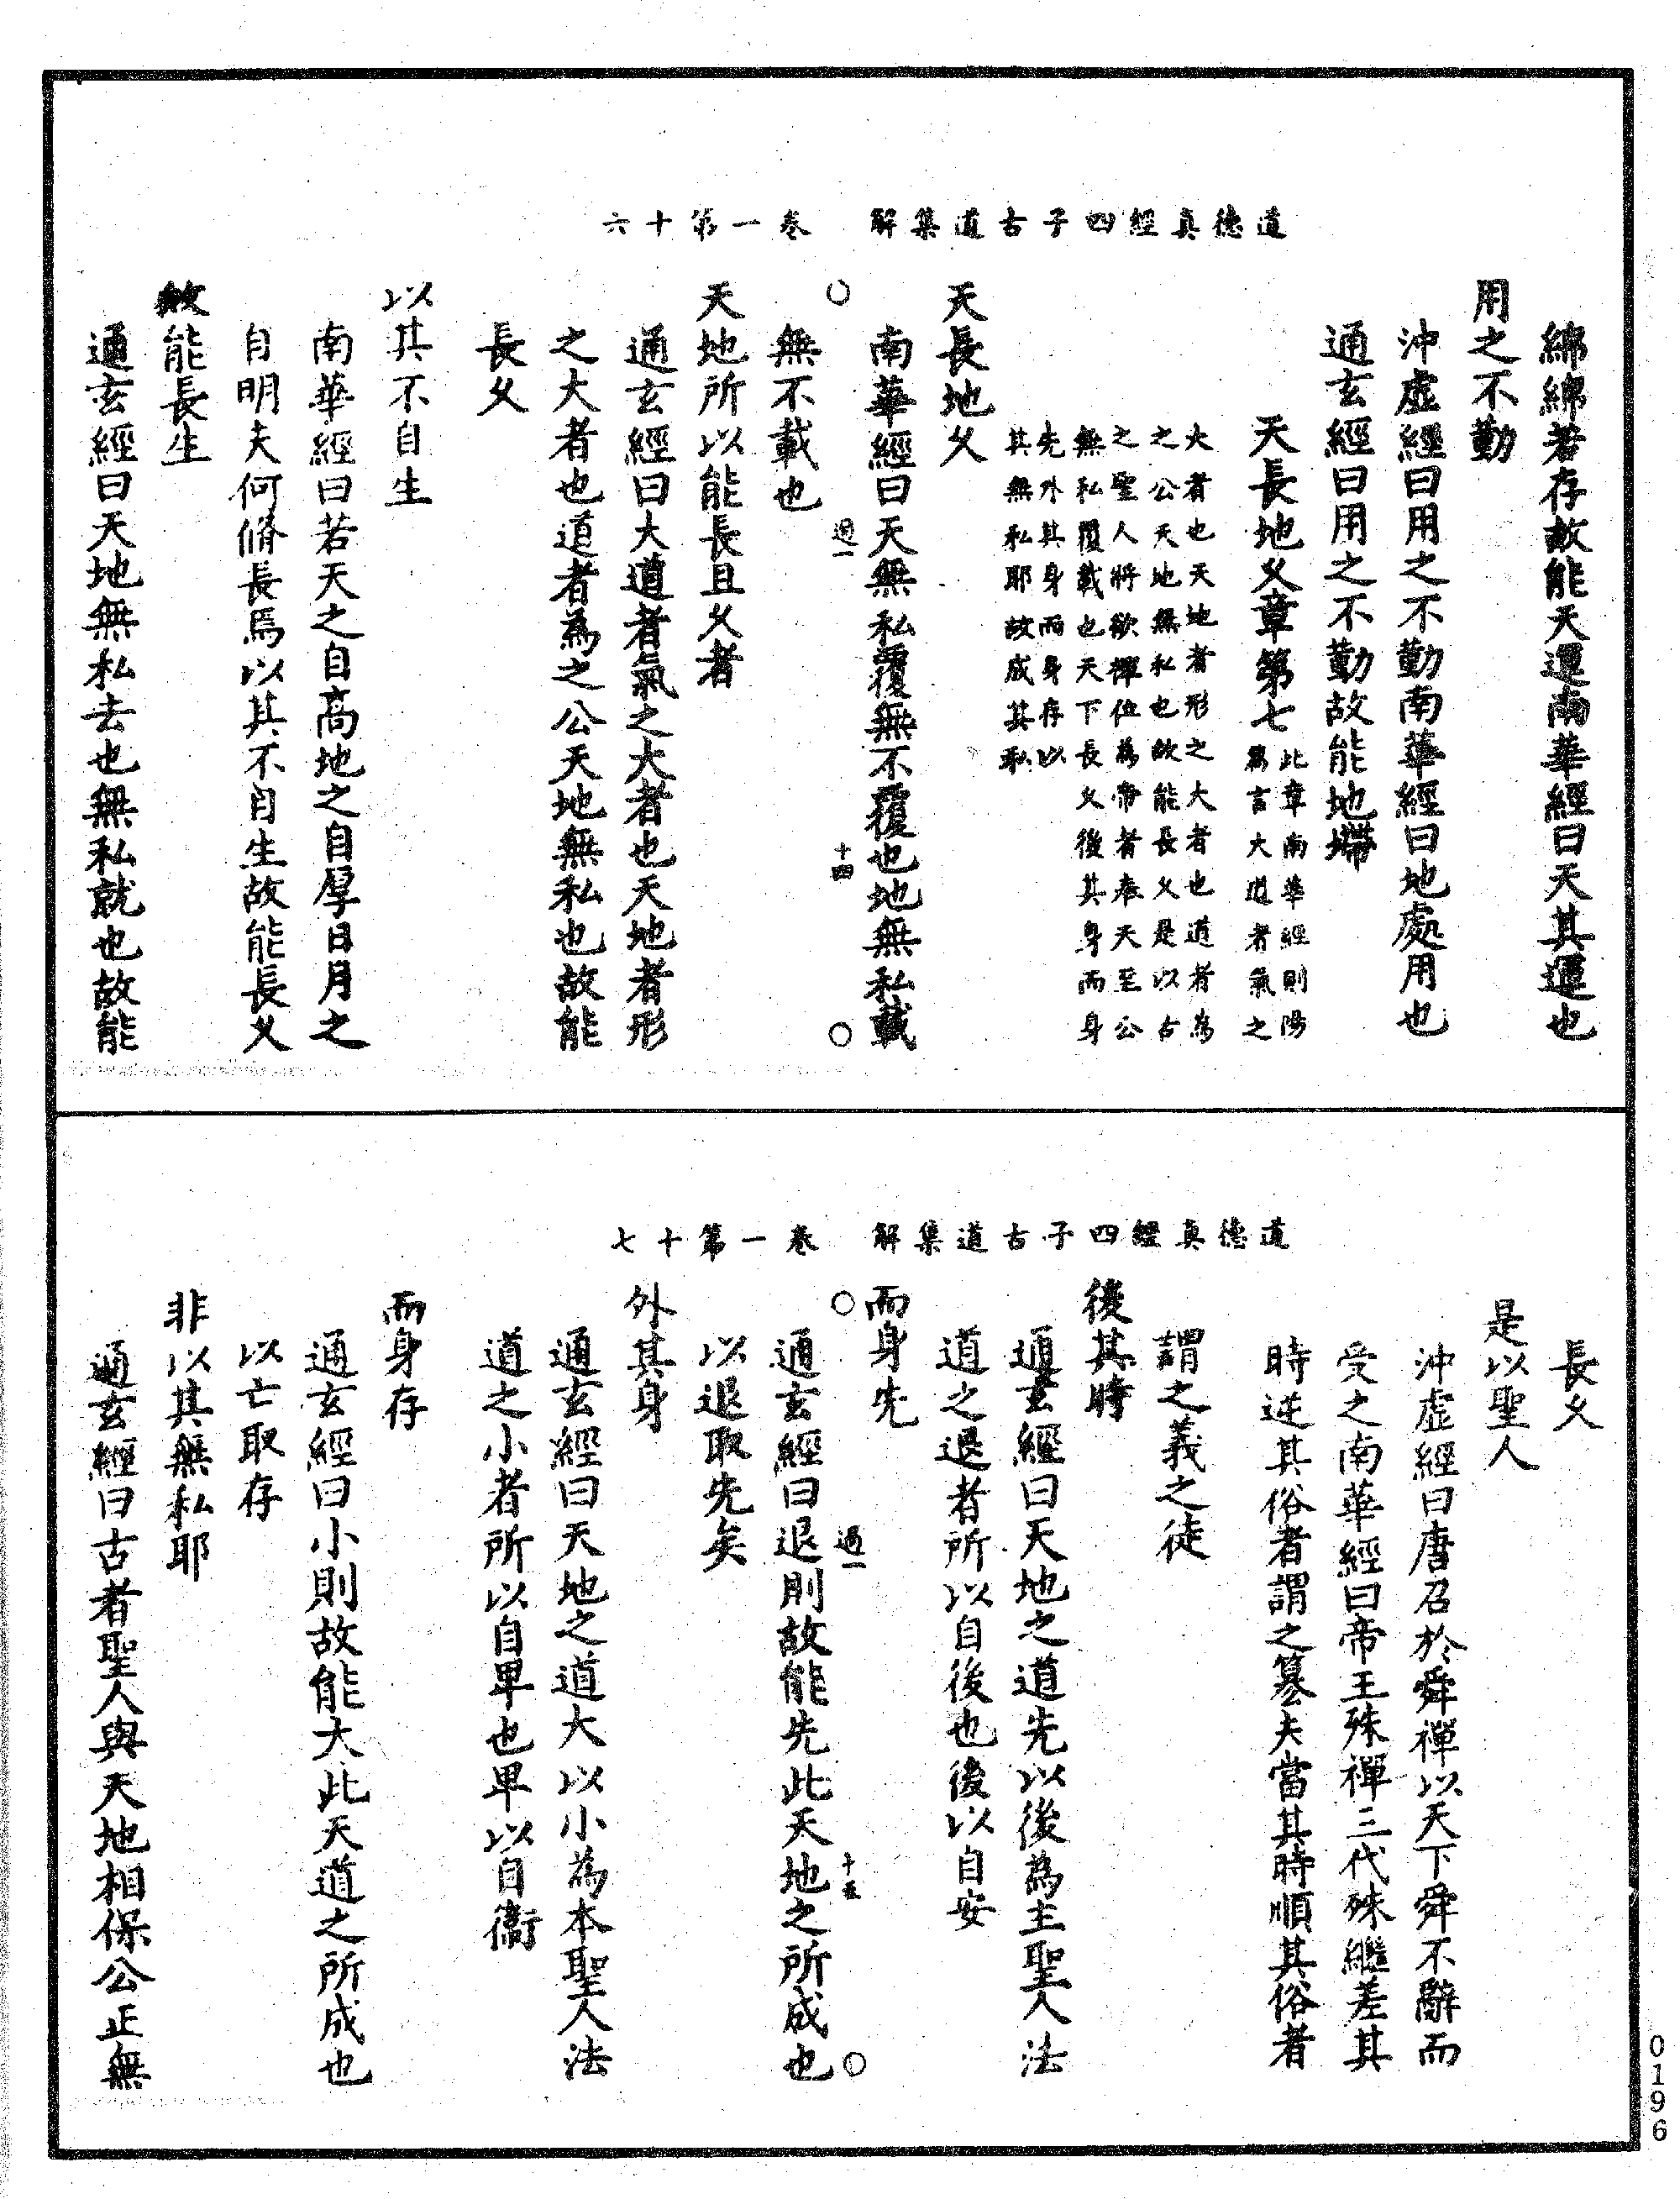 道德真經四子古道集解　卷一第十六
綿綿若存故能天運南華經曰天其運也
用之不勤
沖虛經曰用之不勤南華經曰地處用也
通玄經曰用之不勤故能地墆
天長地久章第七
此章南華經則陽
篇言大道者氣之
大者也天地者形之大者也道者為
之公天地無私也故能長久是以古
之聖人將欲禪位為帝者奉天至公
無私覆載也天下長久後其身而身
先外其身而身存以
其無私耶故成其私
天長地久
南華經曰天無私覆無不覆也地無私載
○　過一　十四　○
無不載也
天地所以能長且久者
通玄經曰大道者氣之大者也天地者形
之大者也道者為之公天地無私也故能
長久
以其不自生
南華經曰若天之自高地之自厚日月之
自明夫何脩長焉以其不自生故能長久
故能長生
通玄經曰天地無私去也無私就也故能
道德真經四子古道集解　卷一第十七
長久
是以聖人
沖虛經曰唐召於舜禪以天下舜不辭而
受之南華經曰帝王殊禪三代殊繼差其
時逆其俗者謂之篡夫當其時順其俗者
謂之義之徒
後其時
通玄經曰天地之道先以後為主聖人法
道之退者所以自後也後以自安
而身先
○　過一　十五　○
通玄經曰退則故能先此天地之所成也
以退取先矣
外其身
通玄經曰天地之道大以小為本聖人法
道之小者所以自卑也卑以自衛
而身存
通玄經曰小則故能大此天道之所成也
以亡取存
非以其無私耶
通玄經曰古者聖人與天地相保公正無
0196